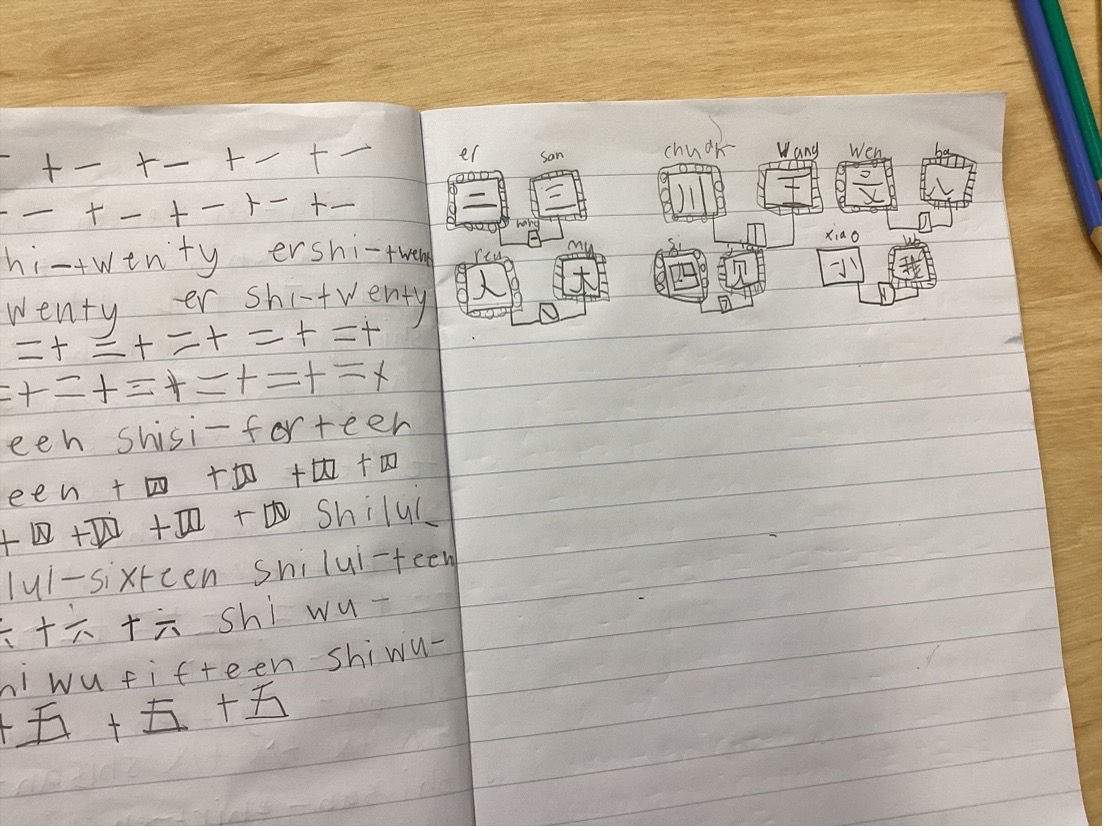 十一 十一 十一 十一
十一 十一 十一 十一
hi-twenty ershi-twen
wenty er shi-twenty
二十 二十 二十 二十 二十
二十 二十 二十 二十 二十 二十
een shisi-forteen
een 十四 十四 十四 十四
十四 十四 十四 十四 shilui
lui-sixteen shi lui-teen
六 十六 十六 shi wu-
hi wu fifteen shiwu-
十五 十五 十五
er san Wang Wen ba
二 三 川 王 文 八
ren mu si xiao wo
人 木 四 见 小 我